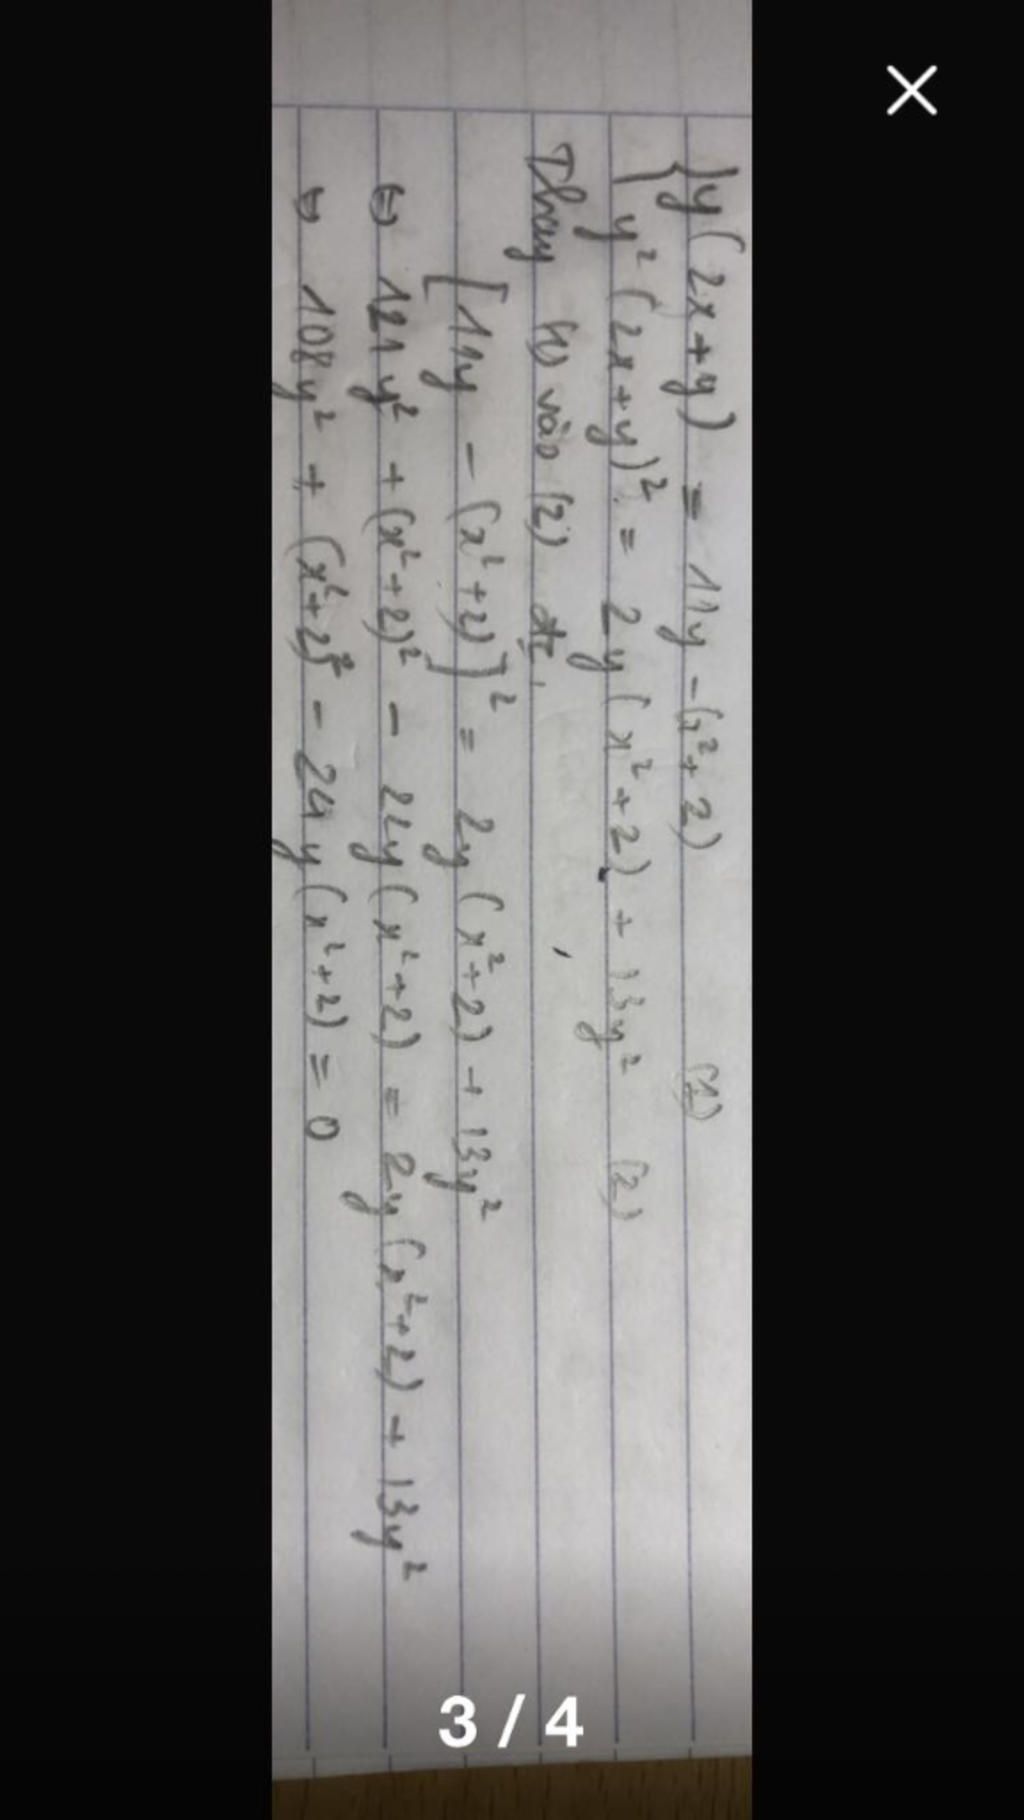 { y(2x+y) = 11y - (x²+2) (1)
y²(2x+y)² = 2y(x²+2) + 13y² (2)
Thay (1) vào (2) đc,
[11y - (x²+2)]² = 2y(x²+2) + 13y²
⇔ 121y² + (x²+2)² - 22y(x²+2) = 2y(x²+2) + 13y²
⇔ 108y² + (x²+2)² - 24y(x²+2) = 0
3 / 4